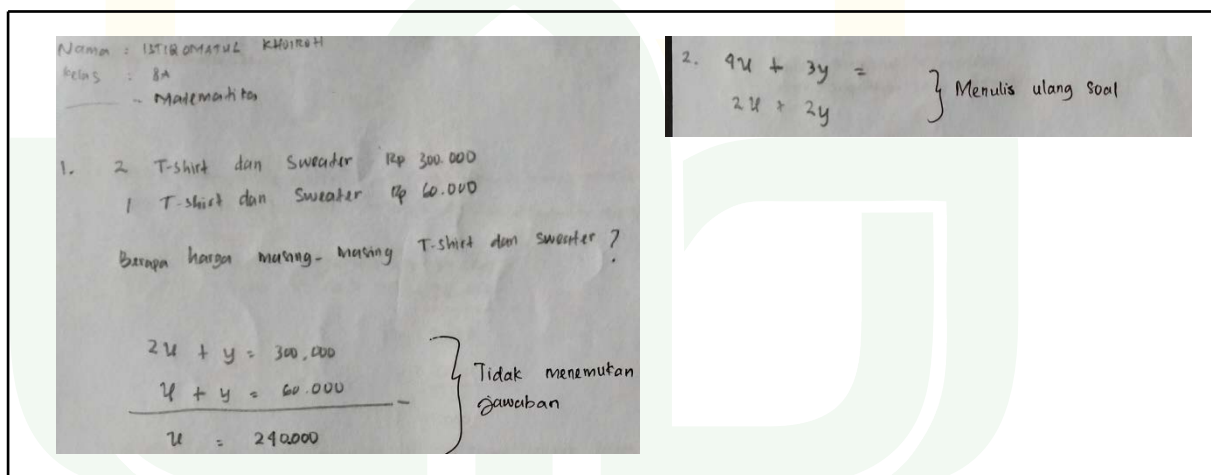 Nama : ISTIQOMATUL KHOIROH
Kelas : 8A
- Matematika
1. 2 T-shirt dan Sweater Rp 300.000
1 T-shirt dan Sweater Rp 60.000
Berapa harga masing-masing T-shirt dan sweater ?
2x + y = 300.000
x + y = 60.000
x = 240.000
Tidak menemukan
jawaban
2. 4x + 3y =
2x + 2y
Menulis ulang soal